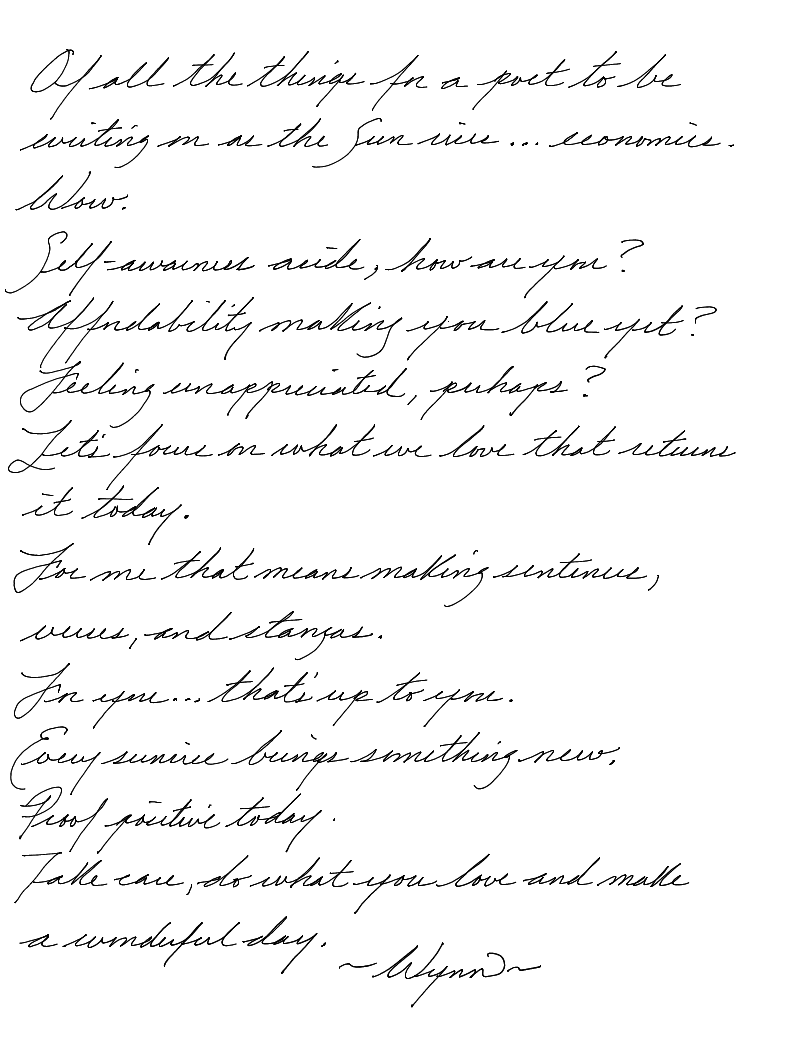 Of all the things for a poet to be
writing on as the Sun rises... economics.
Wow.
Self-awareness aside, how are you?
Affordability making you blue yet?
Feeling unappreciated, perhaps?
Let's focus on what we love that returns
it today.
For me that means making sentences,
verses, and stanzas.
For you... that's up to you.
Every sunrise brings something new.
Proof positive today.
Take care, do what you love and make
a wonderful day.
~Wynn~